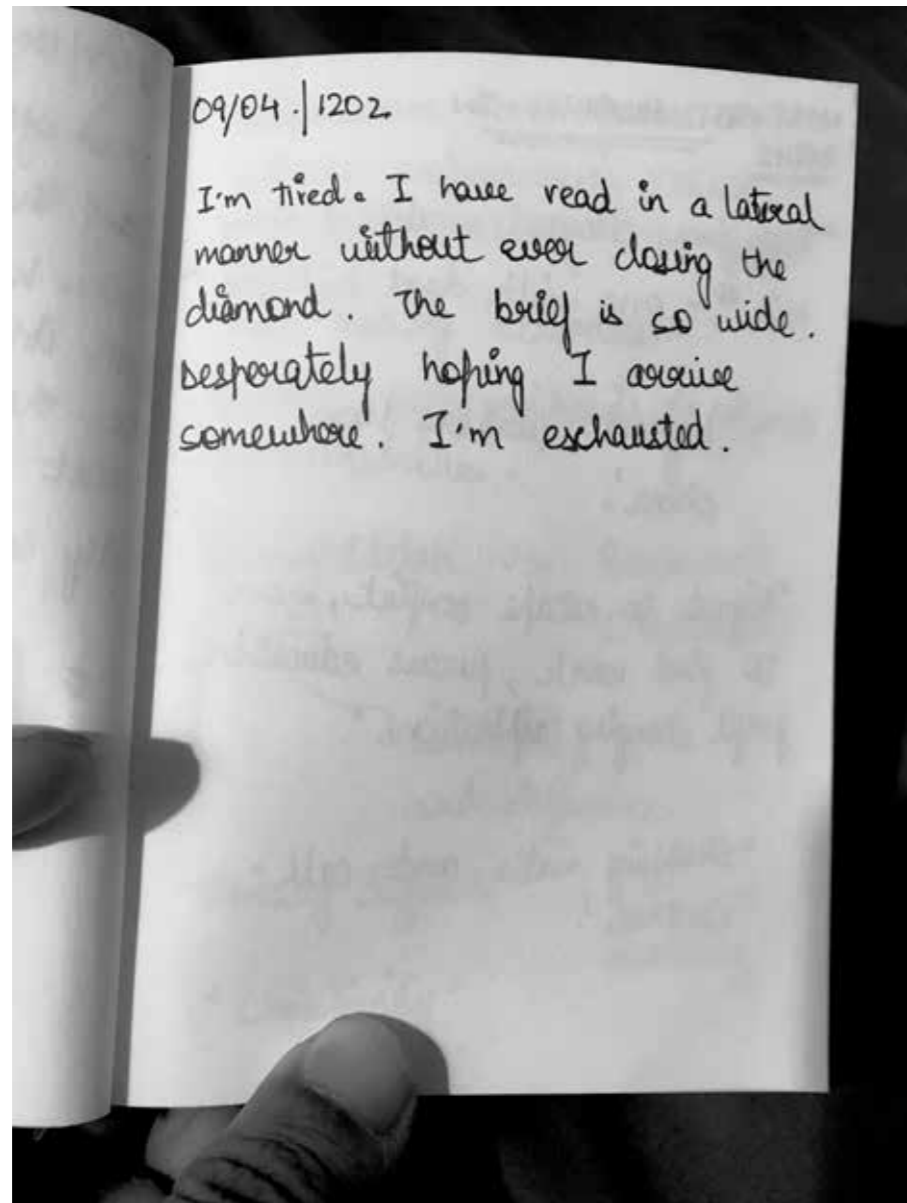 09/04.|1202
I'm tired. I have read in a lateral
manner without ever closing the
diamond. The brief is so wide.
Desperately hoping I arrive
somewhere. I'm exchausted.